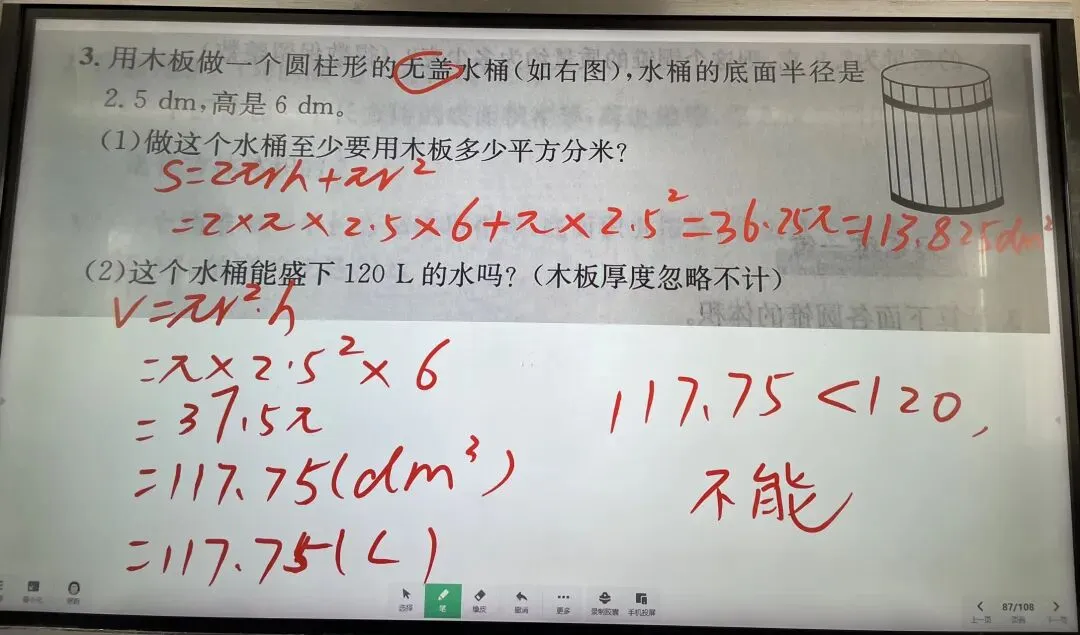 3. 用木板做一个圆柱形的无盖水桶(如右图),水桶的底面半径是
2.5 dm,高是 6 dm。
(1)做这个水桶至少要用木板多少平方分米?
S=2πrh+πr²
=2×π×2.5×6+π×2.5²=36.25π=113.825dm²
(2)这个水桶能盛下 120 L 的水吗?(木板厚度忽略不计)
V=πr²·h
=π×2.5²×6
=37.5π
=117.75(dm³)
=117.75(L)
117.75<120,
不能
下面各圆锥的体积。
选择 笔 橡皮 撤消 更多 录制胶囊 手机投屏
87/108
上一页 下一页